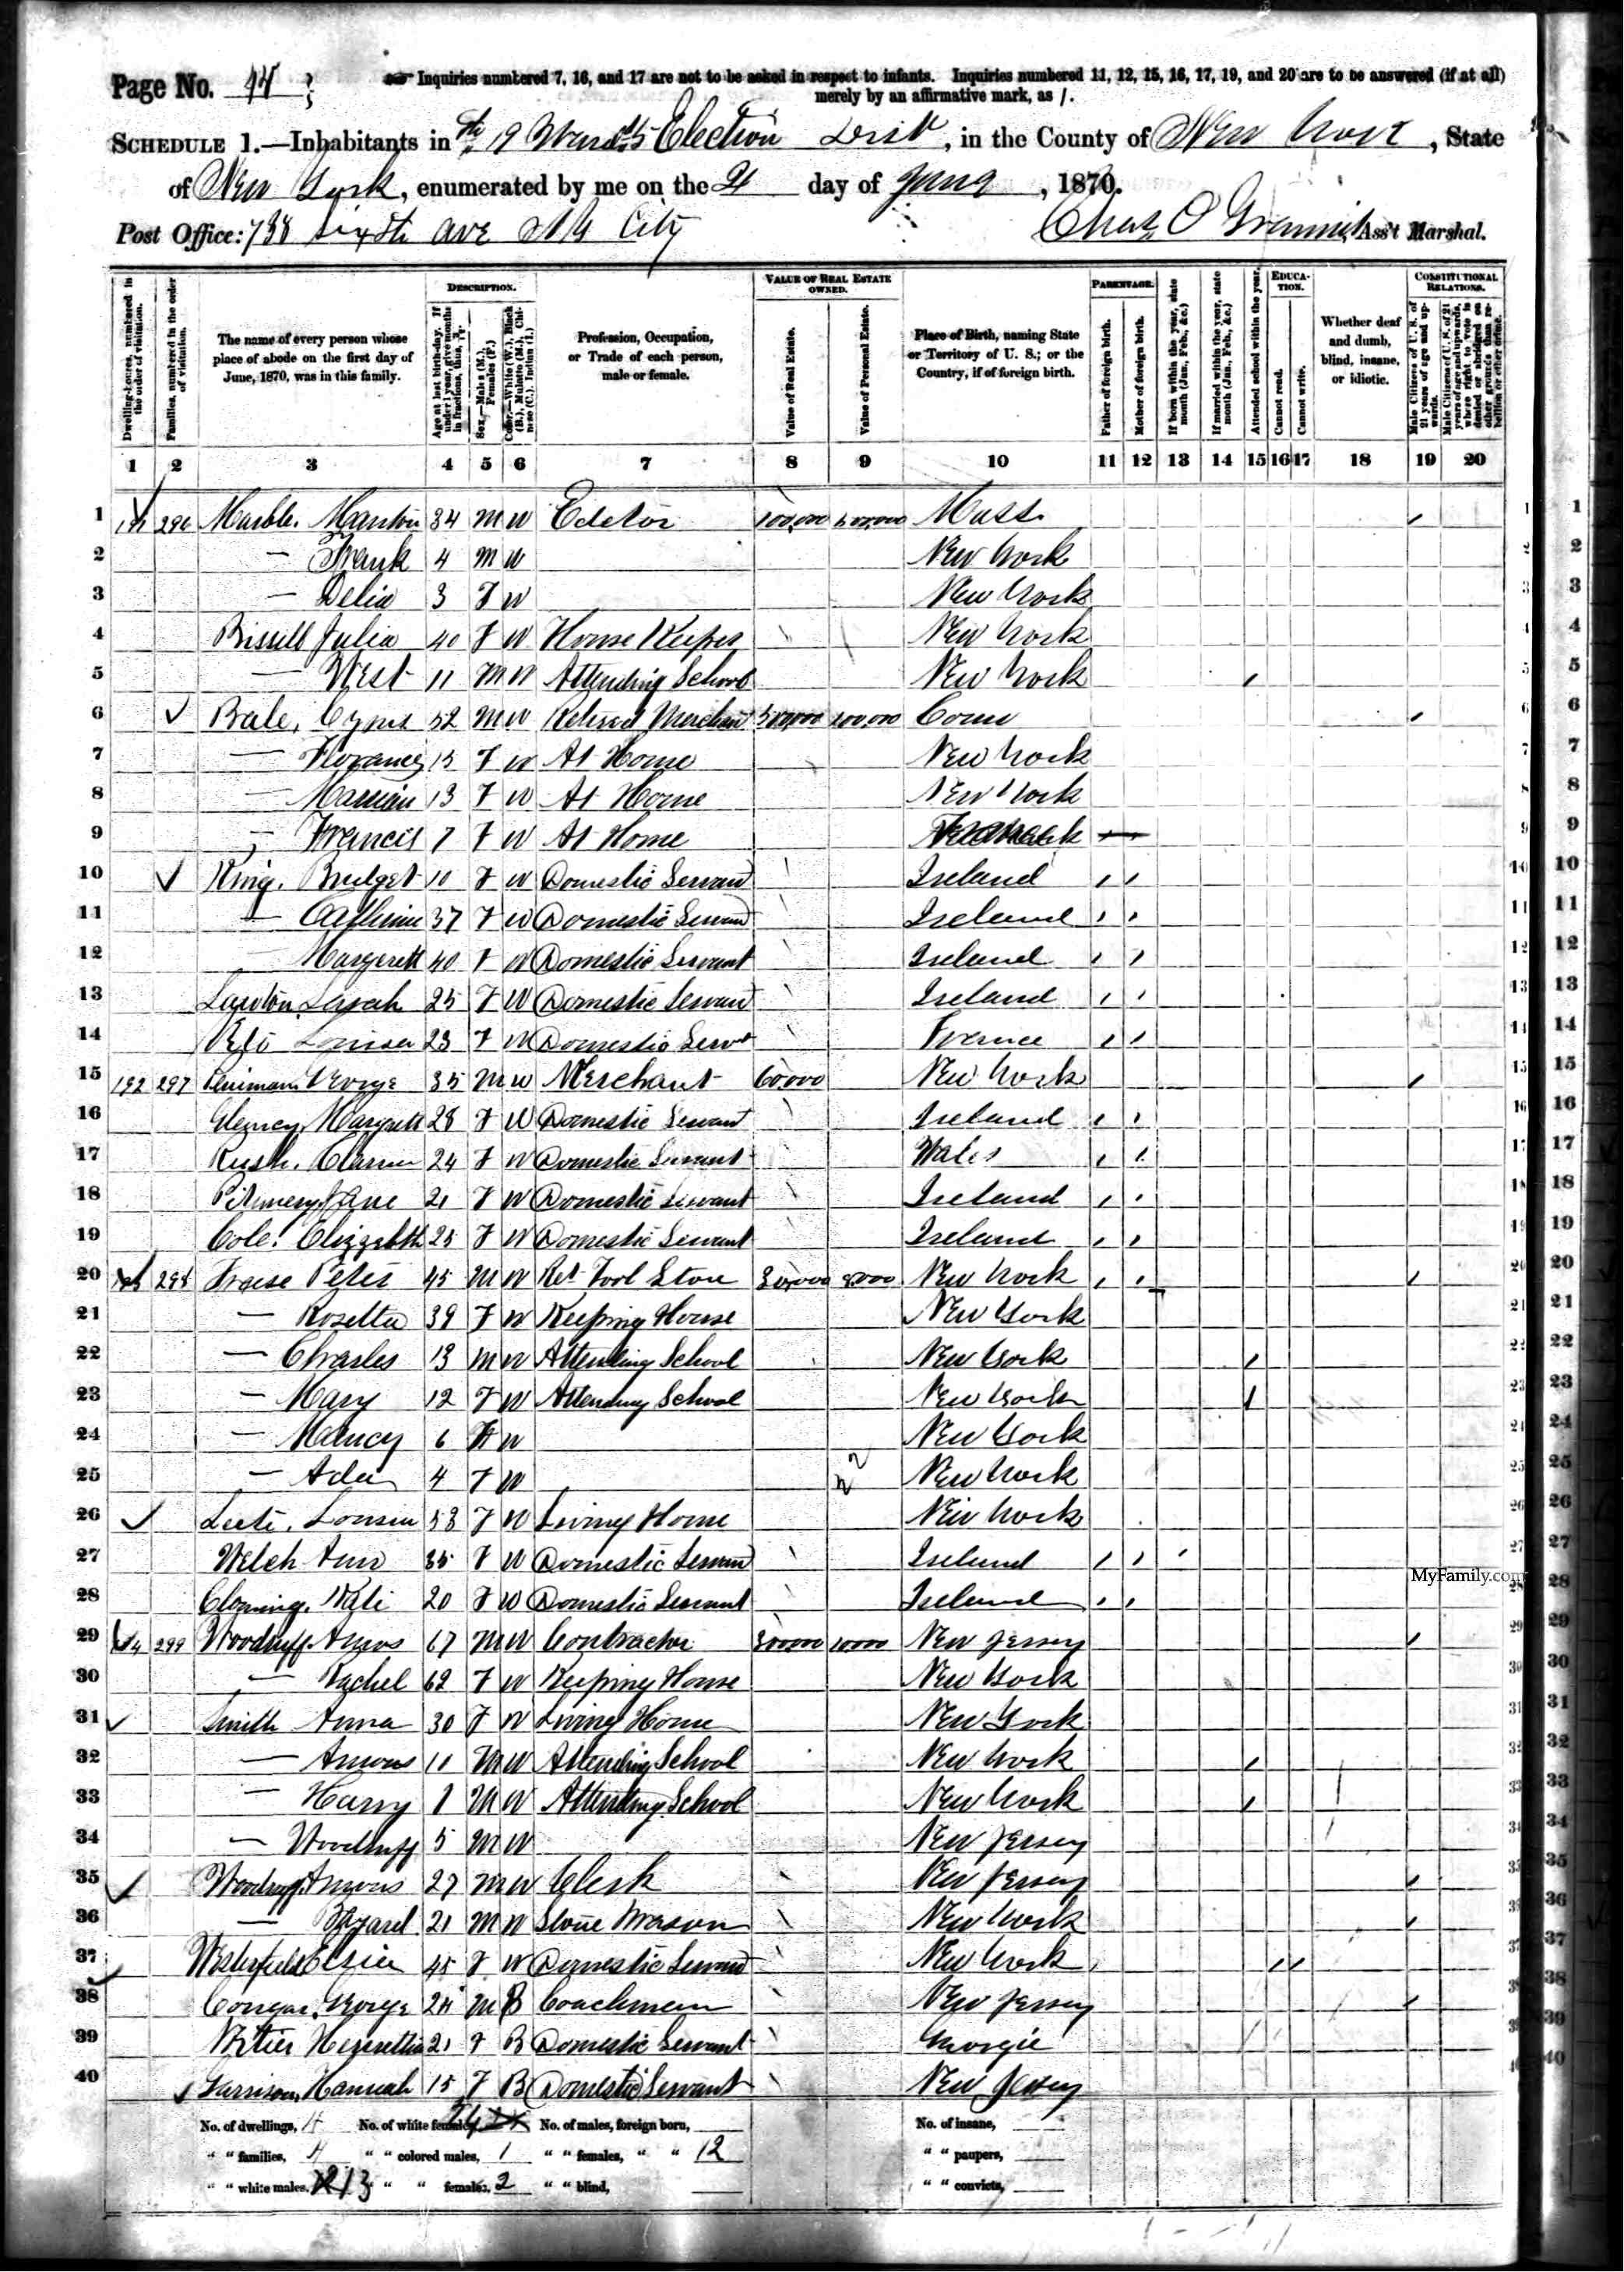 Page No. 44
Inquiries numbered 7, 16, and 17 are not to be asked in respect to infants. Inquiries numbered 11, 12, 15, 16, 17, 19, and 20 are to be answered (if at all)
merely by an affirmative mark, as /.
SCHEDULE 1.—Inhabitants in 19 Ward Election Dist, in the County of New York, State
of New York, enumerated by me on the day of June, 1870.
Post Office: 738 Sixth Ave N Y City Chas O Ass't Marshal.
Dwelling-houses, numbered in the order of visitation.
Families, numbered in the order of visitation.
The name of every person whose place of abode on the first day of June, 1870, was in this family.
DESCRIPTION.
Age at last birth-day. If under 1 year, give months in fractions, thus,
Sex.—Males (M.), Females (F.)
Color.—White (W.), Black (B.), Mulatto (M.), Chinese (C.), Indian (I.)
Profession, Occupation, or Trade of each person, male or female.
VALUE OF REAL ESTATE OWNED.
Value of Real Estate.
Value of Personal Estate.
Place of Birth, naming State or Territory of U. S.; or the Country, if of foreign birth.
PARENTAGE.
Father of foreign birth.
Mother of foreign birth.
If born within the year, state month (Jan., Feb., &c.)
If married within the year, state month (Jan., Feb., &c.)
Attended school within the year.
EDUCATION.
Cannot read.
Cannot write.
Whether deaf and dumb, blind, insane, or idiotic.
CONSTITUTIONAL RELATIONS.
Male Citizens of U. S. of 21 years of age and upwards.
Male Citizens of U. S. of 21 years of age and upwards, whose right to vote is denied or abridged on other grounds than rebellion or other crime.
1 2 3 4 5 6 7 8 9 10 11 12 13 14 15 16 17 18 19 20
1 296 Marble, Manton 34 M W Editor 100,000 Mass 1
2 — Frank 4 M W New York 2
3 — Delia 3 F W New York 3
4 Bissell Julia 40 F W House Keeper New York 4
5 — West 11 M W Attending School New York 5
6 Bale, Cyrus 52 M W Retired Merchant 200,000 Conn 6
7 — 15 F W At Home New York 7
8 — 13 F W At Home New York 8
9 — Francis 7 F W At Home 9
10 King, Bridget F W Domestic Servant Ireland 10
11 — Catherine 37 F W Domestic Servant Ireland 11
12 Margarett 40 F W Domestic Servant Ireland 12
13 Sarah 25 F W Domestic Servant Ireland 13
14 Louisa 23 F W Domestic Servt France 14
15 192 297 George 35 M W Merchant 60,000 New York 15
16 Margarett 28 F W Domestic Servant Ireland 16
17 24 F W Domestic Servant Wales 17
18 Jane 21 F W Domestic Servant Ireland 18
19 Cole, Elizzabeth 25 F W Domestic Servant Ireland 19
20 298 Peter 45 M W Store New York 20
21 — Rosetta 39 F W Keeping House New York 21
22 — Charles 13 M W Attending School New York 22
23 — Mary 12 F W Attending School New York 23
24 — 6 W New York 24
25 — Ada 4 F W New York 25
26 53 F W Living Home New York 26
27 Welch Ann 35 F W Domestic Servant Ireland 27
28 20 F W Domestic Servant Ireland 28
29 299 Woodruff Amos 67 M W Contractor 10000 New Jersey 29
30 — Rachel 62 F W Keeping House New York 30
31 Smith Anna 30 F W Living Home New York 31
32 — Amos 11 M W Attending School New York 32
33 — Harry M W Attending School New York 33
34 — Woodruff 5 M W New Jersey 34
35 Woodruff Amos 27 M W Clerk New Jersey 35
36 — 21 M W Stone Mason New York 36
37 45 F W Domestic Servant New York 37
38 George M B Coachman New Jersey 38
39 21 F B Domestic Servant Georgia 39
40 Garrison, Hannah 15 F B Domestic Servant New Jersey 40
MyFamily.com
No. of dwellings, 4 No. of white females, No. of males, foreign born, No. of insane,
" " families, 4 " " colored males, 1 " " females, " " 12 " " paupers,
" " white males, 13 " " females, 2 " " blind, " " convicts,